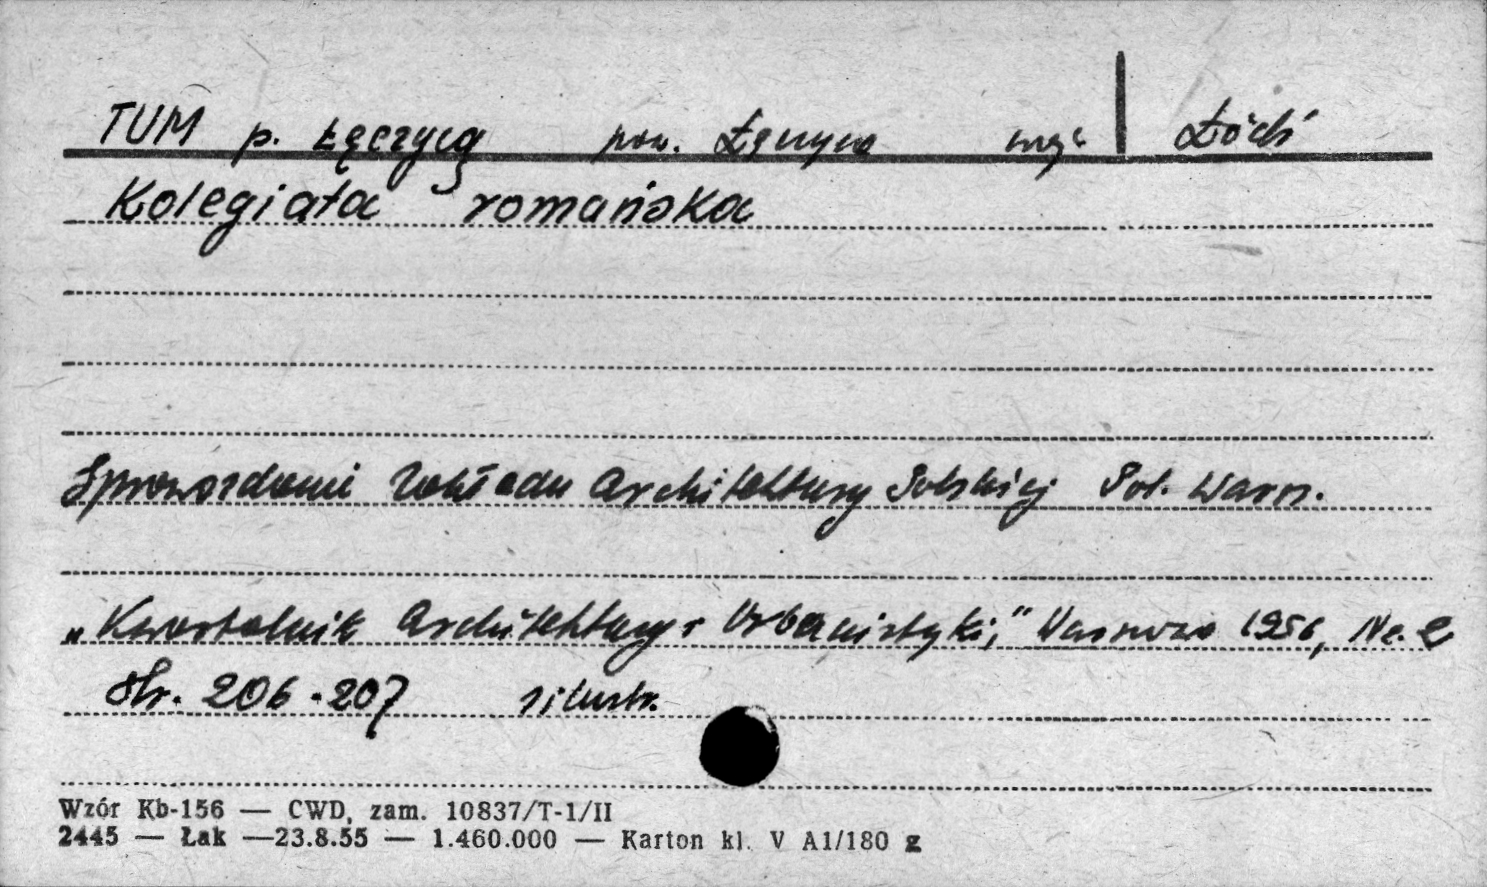 TUM p. Łęczycą pow. Łęczyca woj. Łódź
Kolegiata romańska
Sprawozdanie Zakładu Architektury Polskiej Pol. Warsz.
„Kwartalnik Architektury i Urbanistyki," Warszawa 1956, Nr. 2
str. 206-207 ilustr.
Wzór Kb-156 — CWD, zam. 10837/T-1/II
2445 — Łak —23.8.55 — 1.460.000 — Karton kl. V A1/180 g